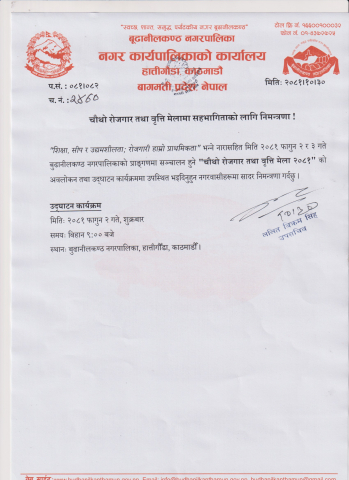 "स्वच्छ, शान्त, समृद्ध, धर्मदर्शन नगर बूढानीलकण्ठ"
बूढानीलकण्ठ नगरपालिका
नगर कार्यपालिकाको कार्यालय
हात्तीगौंडा, काठमाडौं
बागमती प्रदेश, नेपाल
प.सं.: ०८१।०८२
च. नं.: २४६०
मिति: २०८१।१०।३०
चौथो रोजगार तथा वृत्ति मेलामा सहभागिताको लागि निमन्त्रणा !
"शिक्षा, सीप र उद्यमशीलता; रोजगारी हाम्रो प्राथमिकता" भन्ने नारासहित मिति २०८१ फागुन २ र ३ गते
बुढानीलकण्ठ नगरपालिकाको प्राङ्गणमा सञ्चालन हुने "चौथो रोजगार तथा वृत्ति मेला २०८१" को
अवलोकन तथा उद्घाटन कार्यक्रममा उपस्थित भईदिनुहुन नगरवासीहरूमा सादर निमन्त्रणा गर्दछु ।
उद्घाटन कार्यक्रम
मिति: २०८१ फागुन २ गते, शुक्रबार
समय: बिहान ९:०० बजे
स्थान: बुढानीलकण्ठ नगरपालिका, हात्तीगौंडा, काठमाडौं ।
१०।३०
ललित विक्रम सिंह
उपसचिव